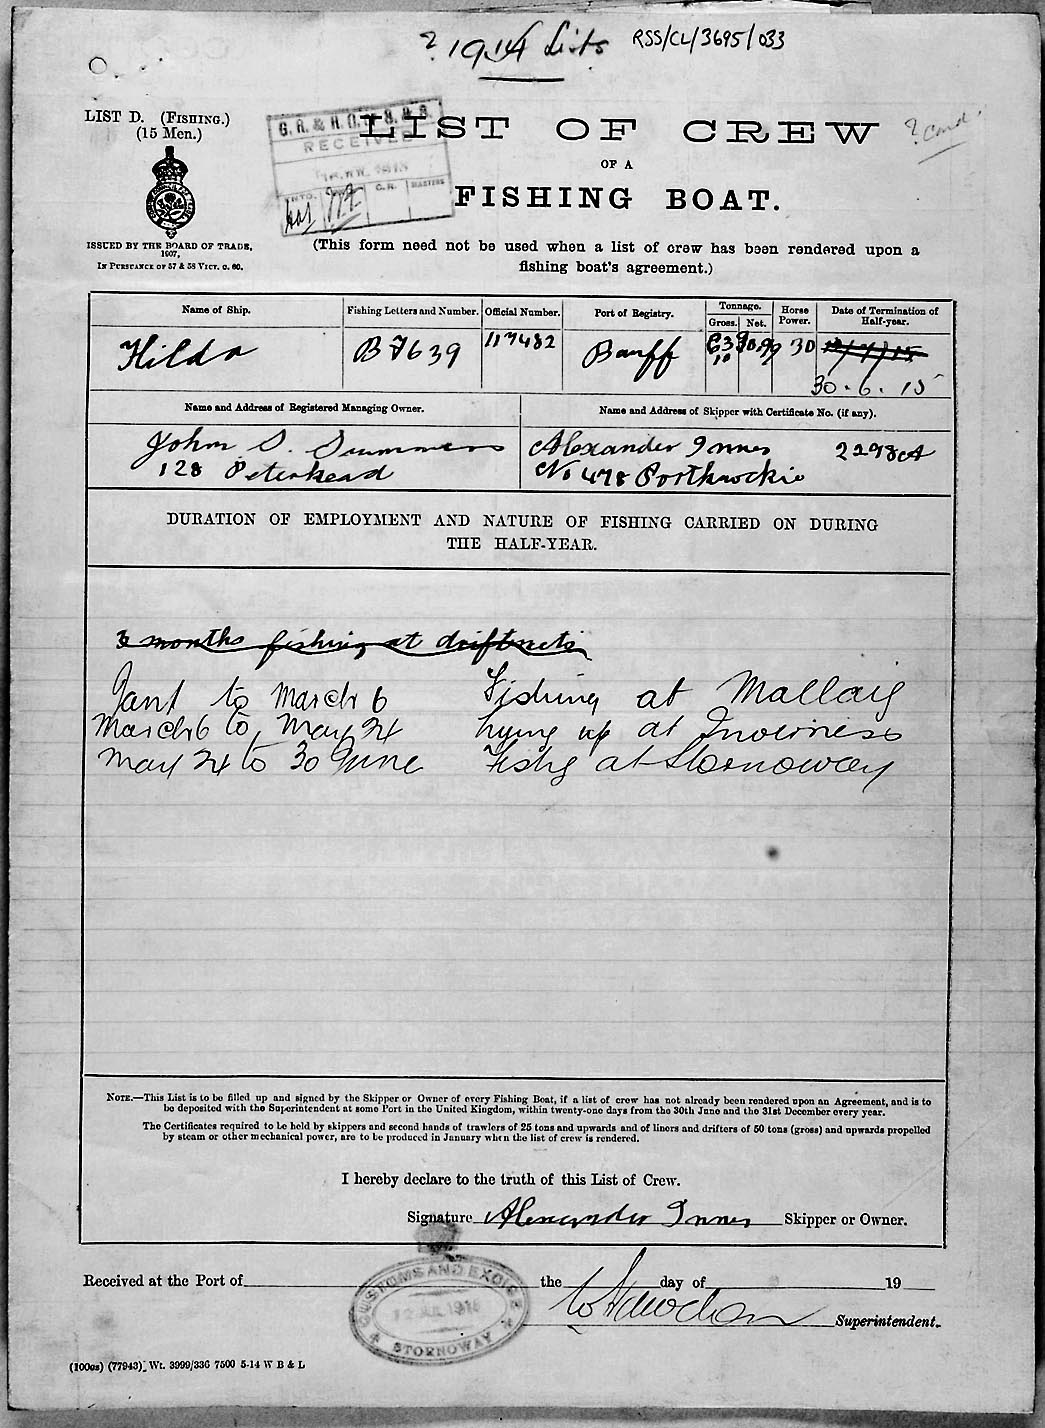 ? 1914 Lists RSS/CL/3695/033
LIST D. (FISHING.)
(15 Men.)
RECEIVED
LIST OF CREW
OF A
FISHING BOAT.
? Cond.
ISSUED BY THE BOARD OF TRADE,
1907,
IN PURSUANCE OF 57 & 58 VICT. C. 60.
(This form need not be used when a list of crew has been rendered upon a
fishing boat's agreement.)
Name of Ship. Fishing Letters and Number. Official Number. Port of Registry. Tonnage. Gross. Net. Horse Power. Date of Termination of Half-year.
Hilda BF639 117482 Banff 30
30.6.15
Name and Address of Registered Managing Owner. Name and Address of Skipper with Certificate No. (if any).
John S. Summers Alexander Innes 2298
128 Peterhead No 478 Portknockie
DURATION OF EMPLOYMENT AND NATURE OF FISHING CARRIED ON DURING
THE HALF-YEAR.
3 months fishing at driftnets
Jan 1 to March 6 Fishing at Mallaig
March 6 to May 24 Lying up at Inverness
May 24 to 30 June Fishg at Stornoway
NOTE.—This List is to be filled up and signed by the Skipper or Owner of every Fishing Boat, if a list of crew has not already been rendered upon an Agreement, and is to
be deposited with the Superintendent at some Port in the United Kingdom, within twenty-one days from the 30th June and the 31st December every year.
The Certificates required to be held by skippers and second hands of trawlers of 25 tons and upwards and of liners and drifters of 50 tons (gross) and upwards propelled
by steam or other mechanical power, are to be produced in January when the list of crew is rendered.
I hereby declare to the truth of this List of Crew.
Signature Alexander Innes Skipper or Owner.
Received at the Port of the day of 19
CUSTOMS AND EXCISE
12 JUL 1915
STORNOWAY
Superintendent.
(100es) (77943) Wt. 3999/336 7500 5-14 W B & L